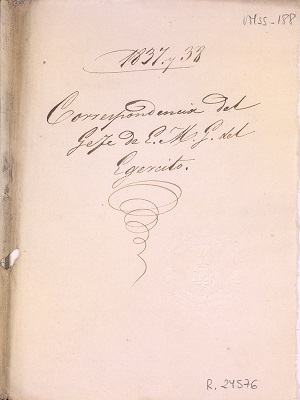 Mss-188
1837 y 38
Correspondencia del
Gefe de E. M. G. del
Egercito.
R. 24576